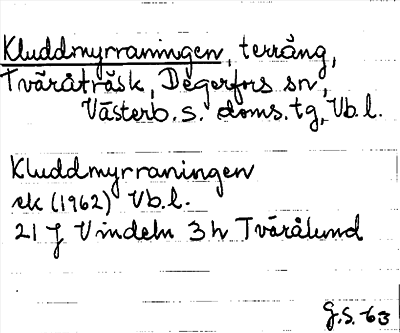 Kluddmyrraningen, terräng,
Tväråträsk, Degerfors sn,
Västerb. s. doms. tg, Vb. l.
Kluddmyrraningen
ek (1962) Vb. l.
21 J Vindeln 3 h Tvärålund
G.S. -63